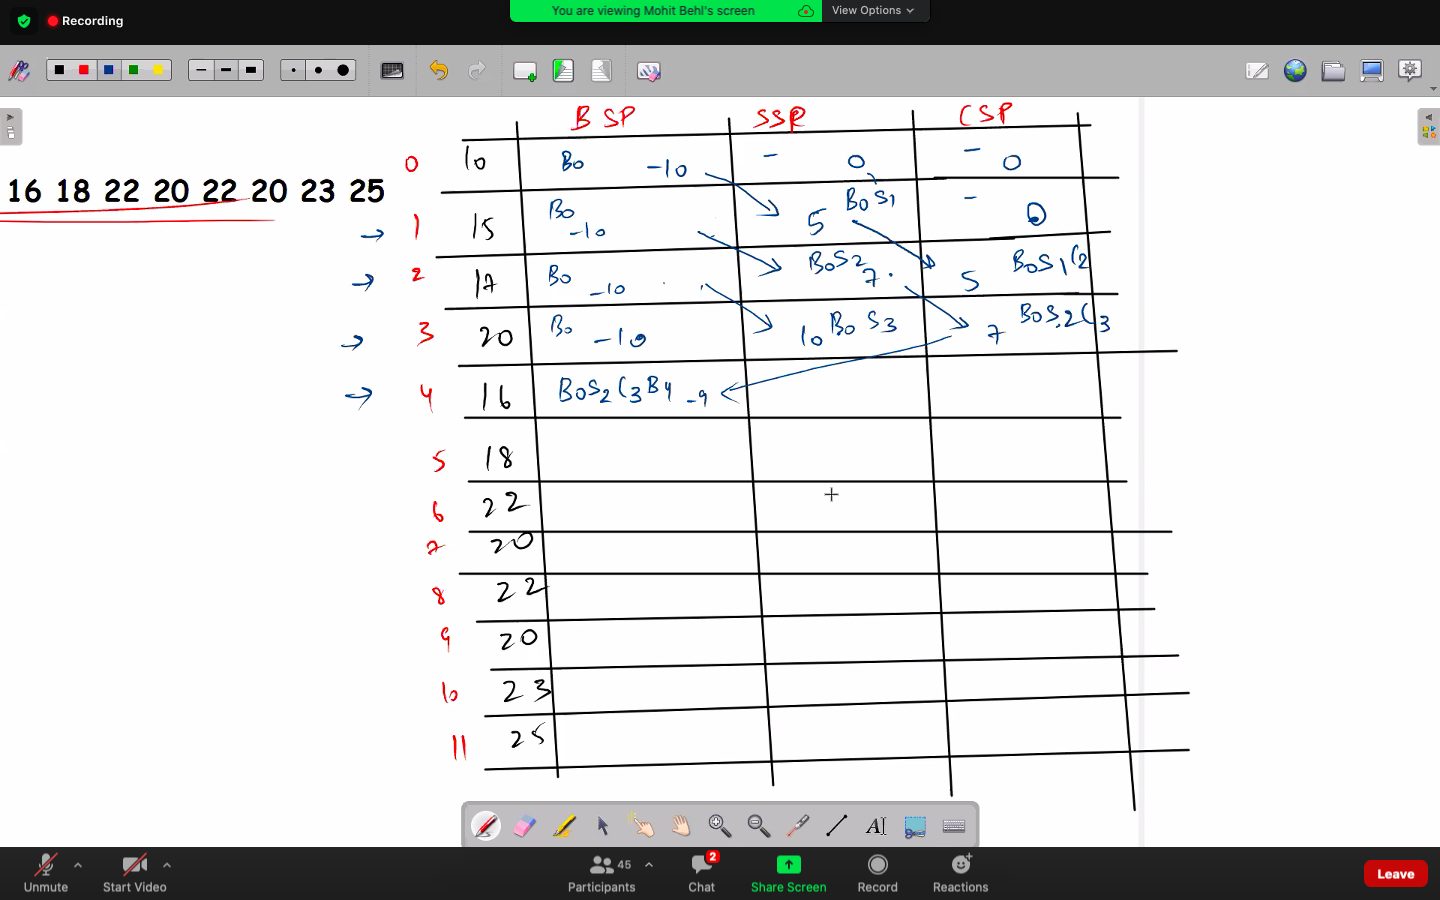 Recording
You are viewing Mohit Behl's screen View Options
BSP SSP CSP
0 10 B0 -10 - 0 - 0
16 18 22 20 22 20 23 25
1 15 B0 -10 5 B0S1 - 0
2 17 B0 -10 B0S2 7 5 B0S1C2
3 20 B0 -10 10 B0S3 7 B0S2C3
4 16 B0S2C3B4 -9
5 18
6 22
7 20
8 22
9 20
10 23
11 25
45 2
Unmute Start Video Participants Chat Share Screen Record Reactions Leave